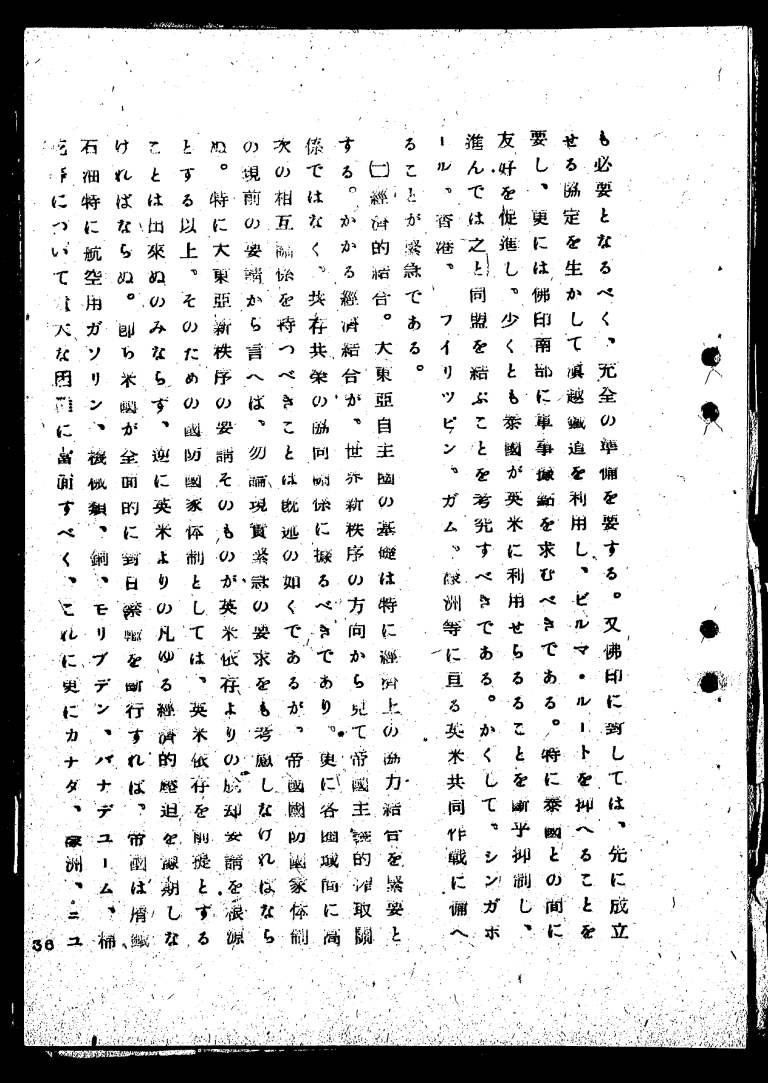 も必要となるべく、完全の準備を要する。又佛印に對しては、先に成立
せる協定を生かして滇越鐵道を利用し、ビルマ・ルートを抑へることを
要し、更には佛印南部に軍事據點を求むべきである。特に泰國との間に
友好を促進し。少くとも泰國が英米に利用せらるることを斷乎抑制し、
進んでは之と同盟を結ぶことを考究すべきである。かくして。シンガポ
ール。香港。フイリツピン。ガム。濠洲等に亘る英米共同作戰に備へ
ることが緊急である。
㈡經濟的結合。大東亞自主圈の基礎は特に經濟上の協力結合を緊要と
する。かかる經濟結合が、世界新秩序の方向から見て帝國主義的搾取關
係ではなく。共存共榮の協同關係に據るべきであり。更に各圈域間に高
次の相互關係を持つべきことは既述の如くであるが、帝國國防國家体制
の現前の要請から言へば。勿論現實緊急の要求をも考慮しなければなら
ぬ。特に大東亞新秩序の要請そのものが英米依存よりの脱却要請を根源
とする以上。そのための國防國家体制としては、英米依存を前提とする
ことは出來ぬのみならず、逆に英米よりの凡ゆる經濟的壓迫を豫期しな
ければならぬ。即ち米國が全面的に對日禁輸を斷行すれば、帝國は屑鐵、
石油特に航空用ガソリン、機械類、銅、モリブデン、バナデユーム、棉
花等について重大な困難に當面すべく、これに更にカナダ、濠洲、ニユ
36